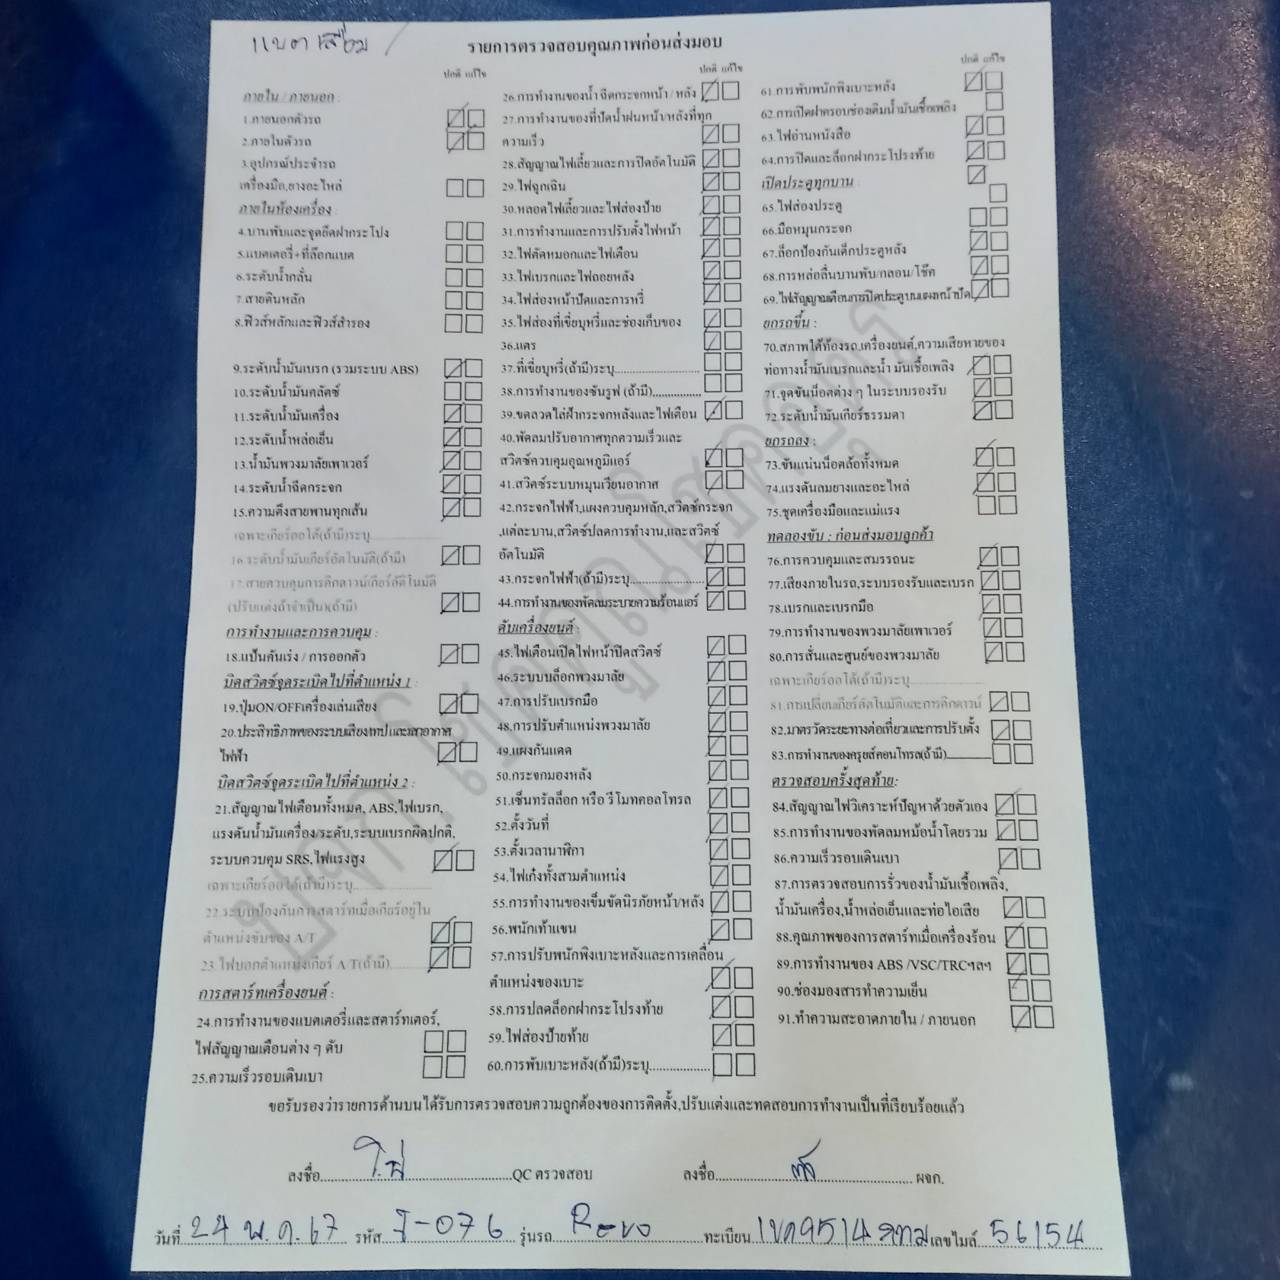 แบตเสื่อม /
รายการตรวจสอบคุณภาพก่อนส่งมอบ
ปกติ แก้ไข
ภายใน / ภายนอก :
1.ภายนอกตัวรถ
2.ภายในตัวรถ
3.อุปกรณ์ประจำรถ
เครื่องมือ,ยางอะไหล่
ภายในห้องเครื่อง :
4.บานพับและจุดยึดฝากระโปง
5.แบตเตอรี่+ที่ล๊อกแบต
6.ระดับน้ำกลั่น
7.สายดินหลัก
8.ฟิวส์หลักและฟิวส์สำรอง
9.ระดับน้ำมันเบรก (รวมระบบ ABS)
10.ระดับน้ำมันคลัตซ์
11.ระดับน้ำมันเครื่อง
12.ระดับน้ำหล่อเย็น
13.น้ำมันพวงมาลัยเพาเวอร์
14.ระดับน้ำฉีดกระจก
15.ความตึงสายพานทุกเส้น
เฉพาะเกียร์ออโต้(ถ้ามี)ระบุ
16.ระดับน้ำมันเกียร์อัตโนมัติ(ถ้ามี)
17.สายควบคุมการคิกดาวน์เกียร์อัตโนมัติ
(ปรับแต่งถ้าจำเป็น)(ถ้ามี)
การทำงานและการควบคุม :
18.แป้นคันเร่ง / การออกตัว
บิดสวิตซ์จุดระเบิดไปที่ตำแหน่ง 1 :
19.ปุ่มON/OFFเครื่องเล่นเสียง
20.ประสิทธิภาพของระบบเสียงเทปและเสาอากาศ
ไฟฟ้า
บิดสวิตซ์จุดระเบิดไปที่ตำแหน่ง 2 :
21.สัญญาณไฟเตือนทั้งหมด, ABS,ไฟเบรก,
แรงดันน้ำมันเครื่อง/ระดับ,ระบบเบรกผิดปกติ,
ระบบควบคุม SRS,ไฟแรงสูง
เฉพาะเกียร์ออโต้(ถ้ามี)ระบุ
22.ระบบป้องกันการสตาร์ทเมื่อเกียร์อยู่ใน
ตำแหน่งขับของ A/T
23.ไฟบอกตำแหน่งเกียร์ A/T(ถ้ามี)
การสตาร์ทเครื่องยนต์ :
24.การทำงานของแบตเตอรี่และสตาร์ทเตอร์,
ไฟสัญญาณเตือนต่าง ๆ ดับ
25.ความเร็วรอบเดินเบา
ปกติ แก้ไข
26.การทำงานของน้ำฉีดกระจกหน้า / หลัง
27.การทำงานของที่ปัดน้ำฝนหน้า/หลังที่ทุก
ความเร็ว
28.สัญญาณไฟเลี้ยวและการปิดอัตโนมัติ
29.ไฟฉุกเฉิน
30.หลอดไฟเลี้ยวและไฟส่องป้าย
31.การทำงานและการปรับตั้งไฟหน้า
32.ไฟตัดหมอกและไฟเตือน
33.ไฟเบรกและไฟถอยหลัง
34.ไฟส่องหน้าปัดและการหรี่
35.ไฟส่องที่เขี่ยบุหรี่และช่องเก็บของ
36.แตร
37.ที่เขี่ยบุหรี่(ถ้ามี)ระบุ
38.การทำงานของซันรูฟ (ถ้ามี)
39.ขดลวดไล่ฝ้ากระจกหลังและไฟเตือน
40.พัดลมปรับอากาศทุกความเร็วและ
สวิตซ์ควบคุมอุณหภูมิแอร์
41.สวิตซ์ระบบหมุนเวียนอากาศ
42.กระจกไฟฟ้า,แผงควบคุมหลัก,สวิตซ์กระจก
,แต่ละบาน,สวิตซ์ปลดการทำงาน,และสวิตซ์
อัตโนมัติ
43.กระจกไฟฟ้า(ถ้ามี)ระบุ
44.การทำงานของพัดลมระบายความร้อนแอร์
ดับเครื่องยนต์ :
45.ไฟเตือนเปิดไฟหน้าปิดสวิตซ์
46.ระบบบล็อกพวงมาลัย
47.การปรับเบรกมือ
48.การปรับตำแหน่งพวงมาลัย
49.แผงกันแดด
50.กระจกมองหลัง
51.เซ็นทรัลล็อก หรือ รีโมทคอลโทรล
52.ตั้งวันที่
53.ตั้งเวลานาฬิกา
54.ไฟเก๋งทั้งสามตำแหน่ง
55.การทำงานของเข็มขัดนิรภัยหน้า/หลัง
56.พนักเท้าแขน
57.การปรับพนักพิงเบาะหลังและการเคลื่อน
ตำแหน่งของเบาะ
58.การปลดล็อกฝากระโปรงท้าย
59.ไฟส่องป้ายท้าย
60.การพับเบาะหลัง(ถ้ามี)ระบุ
ปกติ แก้ไข
61.การพับพนักพิงเบาะหลัง
62.การเปิดฝาครอบช่องเติมน้ำมันเชื้อเพลิง
63.ไฟอ่านหนังสือ
64.การปิดและล็อกฝากระโปรงท้าย
เปิดประตูทุกบาน :
65.ไฟส่องประตู
66.มือหมุนกระจก
67.ล็อกป้องกันเด็กประตูหลัง
68.การหล่อลื่นบานพับ/กลอน/โช๊ค
69.ไฟสัญญาณเตือนการปิดประตูบนแผงหน้าปัด
ยกรถขึ้น :
70.สภาพใต้ท้องรถ,เครื่องยนต์,ความเสียหายของ
ท่อทางน้ำมันเบรกและน้ำมันเชื้อเพลิง
71.จุดขันน็อตต่าง ๆ ในระบบรองรับ
72.ระดับน้ำมันเกียร์ธรรมดา
ยกรถลง :
73.ขันแน่นน็อตล้อทั้งหมด
74.แรงดันลมยางและอะไหล่
75.ชุดเครื่องมือและแม่แรง
ทดลองขับ : ก่อนส่งมอบลูกค้า
76.การควบคุมและสมรรถนะ
77.เสียงภายในรถ,ระบบรองรับและเบรก
78.เบรกและเบรกมือ
79.การทำงานของพวงมาลัยเพาเวอร์
80.การสั่นและศูนย์ของพวงมาลัย
เฉพาะเกียร์ออโต้(ถ้ามี)ระบุ
81.การเปลี่ยนเกียร์อัตโนมัติและการคิกดาวน์
82.มาตรวัดระยะทางต่อเที่ยวและการปรับตั้ง
83.การทำงานของครุยส์คอนโทรล(ถ้ามี)
ตรวจสอบครั้งสุดท้าย:
84.สัญญาณไฟวิเคราะห์ปัญหาด้วยตัวเอง
85.การทำงานของพัดลมหม้อน้ำโดยรวม
86.ความเร็วรอบเดินเบา
87.การตรวจสอบการรั่วของน้ำมันเชื้อเพลิง,
น้ำมันเครื่อง,น้ำหล่อเย็นและท่อไอเสีย
88.คุณภาพของการสตาร์ทเมื่อเครื่องร้อน
89.การทำงานของ ABS /VSC/TRCฯลฯ
90.ช่องมองสารทำความเย็น
91.ทำความสะอาดภายใน / ภายนอก
ขอรับรองว่ารายการด้านบนได้รับการตรวจสอบความถูกต้องของการติดตั้ง,ปรับแต่งและทดสอบการทำงานเป็นที่เรียบร้อยแล้ว
ลงชื่อ QC ตรวจสอบ ลงชื่อ ผจก.
วันที่ 24 พ.ค.67 รหัส วิ-076 รุ่นรถ Revo ทะเบียน 1ขค9514 กทม เลขไมล์ 56154